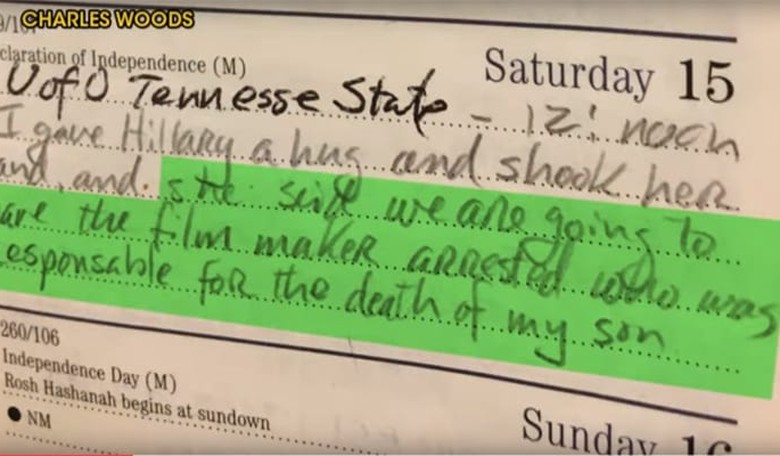 CHARLES WOODS
claration of Independence (M)
Saturday 15
U of O Tennesse State - 12: noon
I gave Hillary a hug and shook her
and, and. she said we are going to
are the film maker arrested who was
esponsable for the death of my son
260/106
Independence Day (M)
Rosh Hashanah begins at sundown
NM
Sunday 16